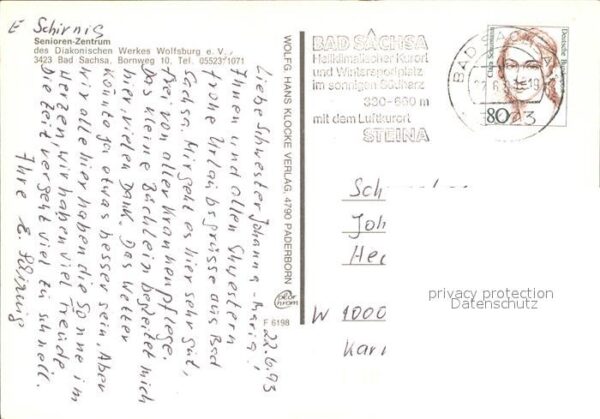 E Schirnig
Senioren-Zentrum
des Diakonischen Werkes Wolfsburg e. V.,
3423 Bad Sachsa, Bornweg 10, Tel. 05523/1071
22.6.93
Liebe Schwester Johanna-Maria!
Ihnen und allen Schwestern
frohe Urlaubsgrüsse aus Bad
Sachsa. Mir geht es hier sehr gut,
frei von aller Krankenpflege.
Das kleine Büchlein begleitet mich
hier vielen Dank. Das Wetter
könnte ja etwas besser sein. Aber
wir alle hier haben die Sonne im
Herzen, wir haben viel Freude
Die Zeit, vergeht viel zu schnell.
Ihre E. Schirnig
WOLFG. HANS KLOCKE VERLAG, 4790 PADERBORN
color chrom
F 6198
BAD SACHSA
Heilklimatischer Kurort
und Wintersportplatz
im sonnigen Südharz
330-660 m
mit dem Luftkurort
STEINA
BAD SACHSA
Deutsche Bundespost
80
Sch
Joh
Hei
W 1000
Kar
privacy protection
Datenschutz